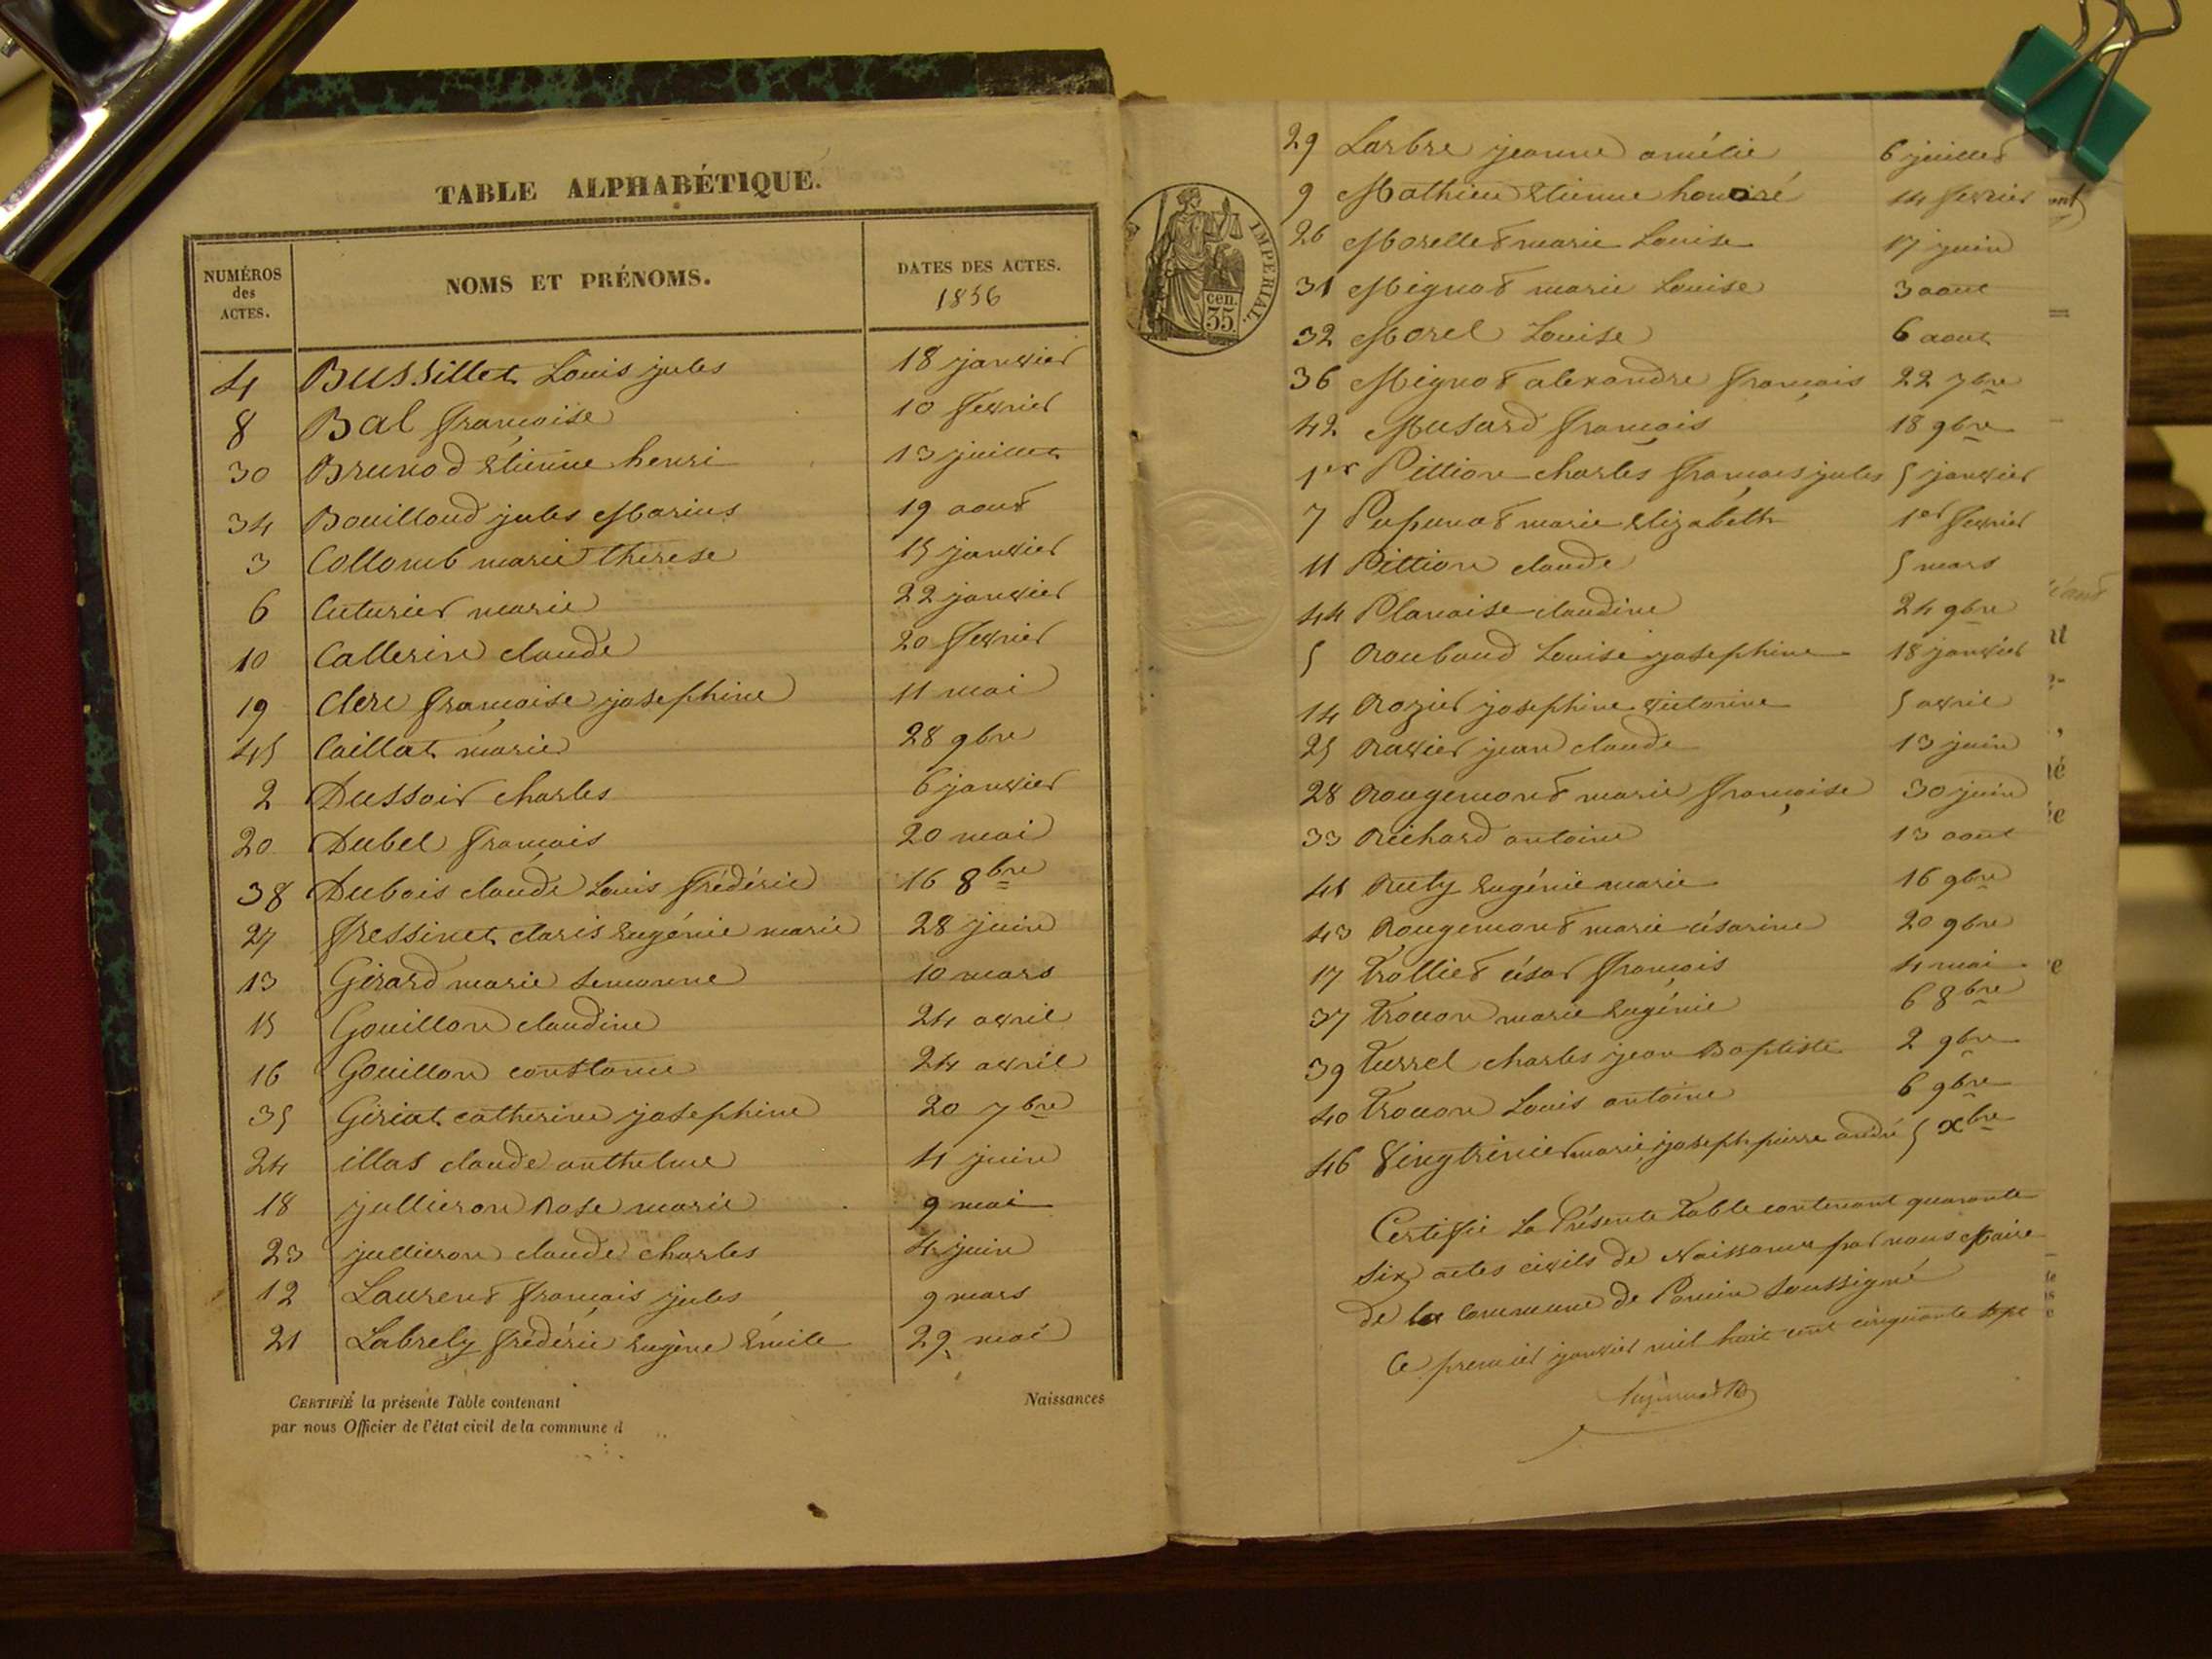 TABLE ALPHABÉTIQUE.
NUMÉROS des ACTES. NOMS ET PRÉNOMS. DATES DES ACTES. 1856
4 Bussillet Louis jules 18 janvier
8 Bal françoise 10 fevrier
30 Brunod Etienne henri 13 juillet
34 Bouilloud jules Marius 19 aout
3 Collomb marie therese 15 janvier
6 Cuturier marie 22 janvier
10 Callerin claude 20 fevrier
19 Clerc françoise josephine 11 mai
45 Caillat marie 28 9bre
2 Dussoir charles 6 janvier
20 Dubel françois 20 mai
38 Dubois claude Louis frédéric 16 8bre
27 fressinet claris Eugénie marie 28 juin
13 Girard marie Semonne 10 mars
15 Gouillon claudine 24 avril
16 Gouillon constance 24 avril
35 Giriat catherine josephine 20 7bre
24 illas claude anthelme 4 juin
18 jullieron Rose marie 9 mai
23 jullieron claude charles 4 juin
12 Laurent françois jules 9 mars
21 Labrely frédéric Eugène Emile 29 mai
CERTIFIÉ la présente Table contenant Naissances
par nous Officier de l'état civil de la commune d
IMPERIAL.
cen.
35.
29 Larbre jeanne amélie 6 juillet
9 Mathieu Etienne honoré 14 fevrier
26 Morellet marie Louise 17 juin
31 Mignot marie Louise 3 aout
32 Morel Louise 6 aout
36 Mignot alexandre françois 22 7bre
42 Musard françois 18 9bre
1er Pittion charles françois jules 5 janvier
7 marie Elizabeth 1er fevrier
11 Pittion claude 5 mars
44 Planaise claudine 24 9bre
5 Roubaud Louise josephine 18 janvier
14 Rozier josephine victorine 5 avril
25 Ravier jean claude 13 juin
28 Rougemont marie françoise 30 juin
33 Richard antoine 13 aout
41 Ruty Eugénie marie 16 9bre
43 Rougemont marie césarine 20 9bre
17 Trolliet césar françois 4 mai
37 Trouon marie Eugénie 6 8bre
39 Turrel charles jean Baptiste 2 9bre
40 Trouon Louis antoine 6 9bre
46 Vingtrinier marie joseph pierre andré 5 xbre
Certifié la Présente Table contenant quarante
Six actes civils de Naissances par nous Maire
de la commune de Poncin soussigné
Ce premier janvier mil huit cent cinquante sept